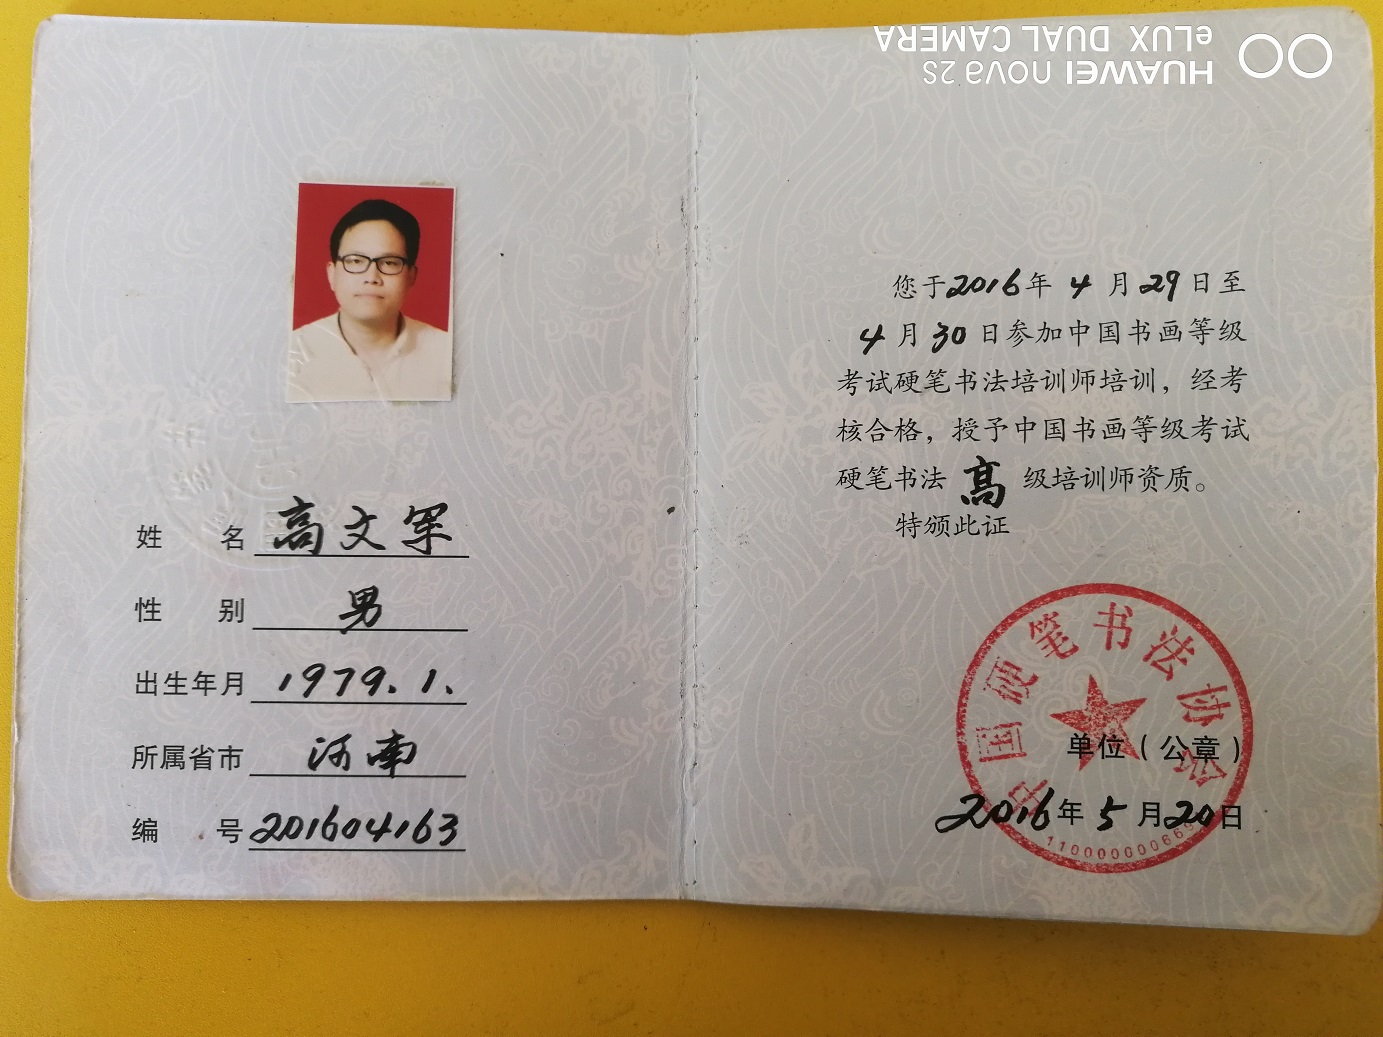 姓 名 高文军
性 别 男
出生年月 1979.1.
所属省市 河南
编 号 201604163
您于2016年 4 月29日至
4 月 30 日参加中国书画等级
考试硬笔书法培训师培训，经考
核合格，授予中国书画等级考试
硬笔书法 高 级培训师资质。
特颁此证
中国硬笔书法协会
单位（公章）
2016年 5 月20日
HUAWEI nova 2S
eLUX DUAL CAMERA